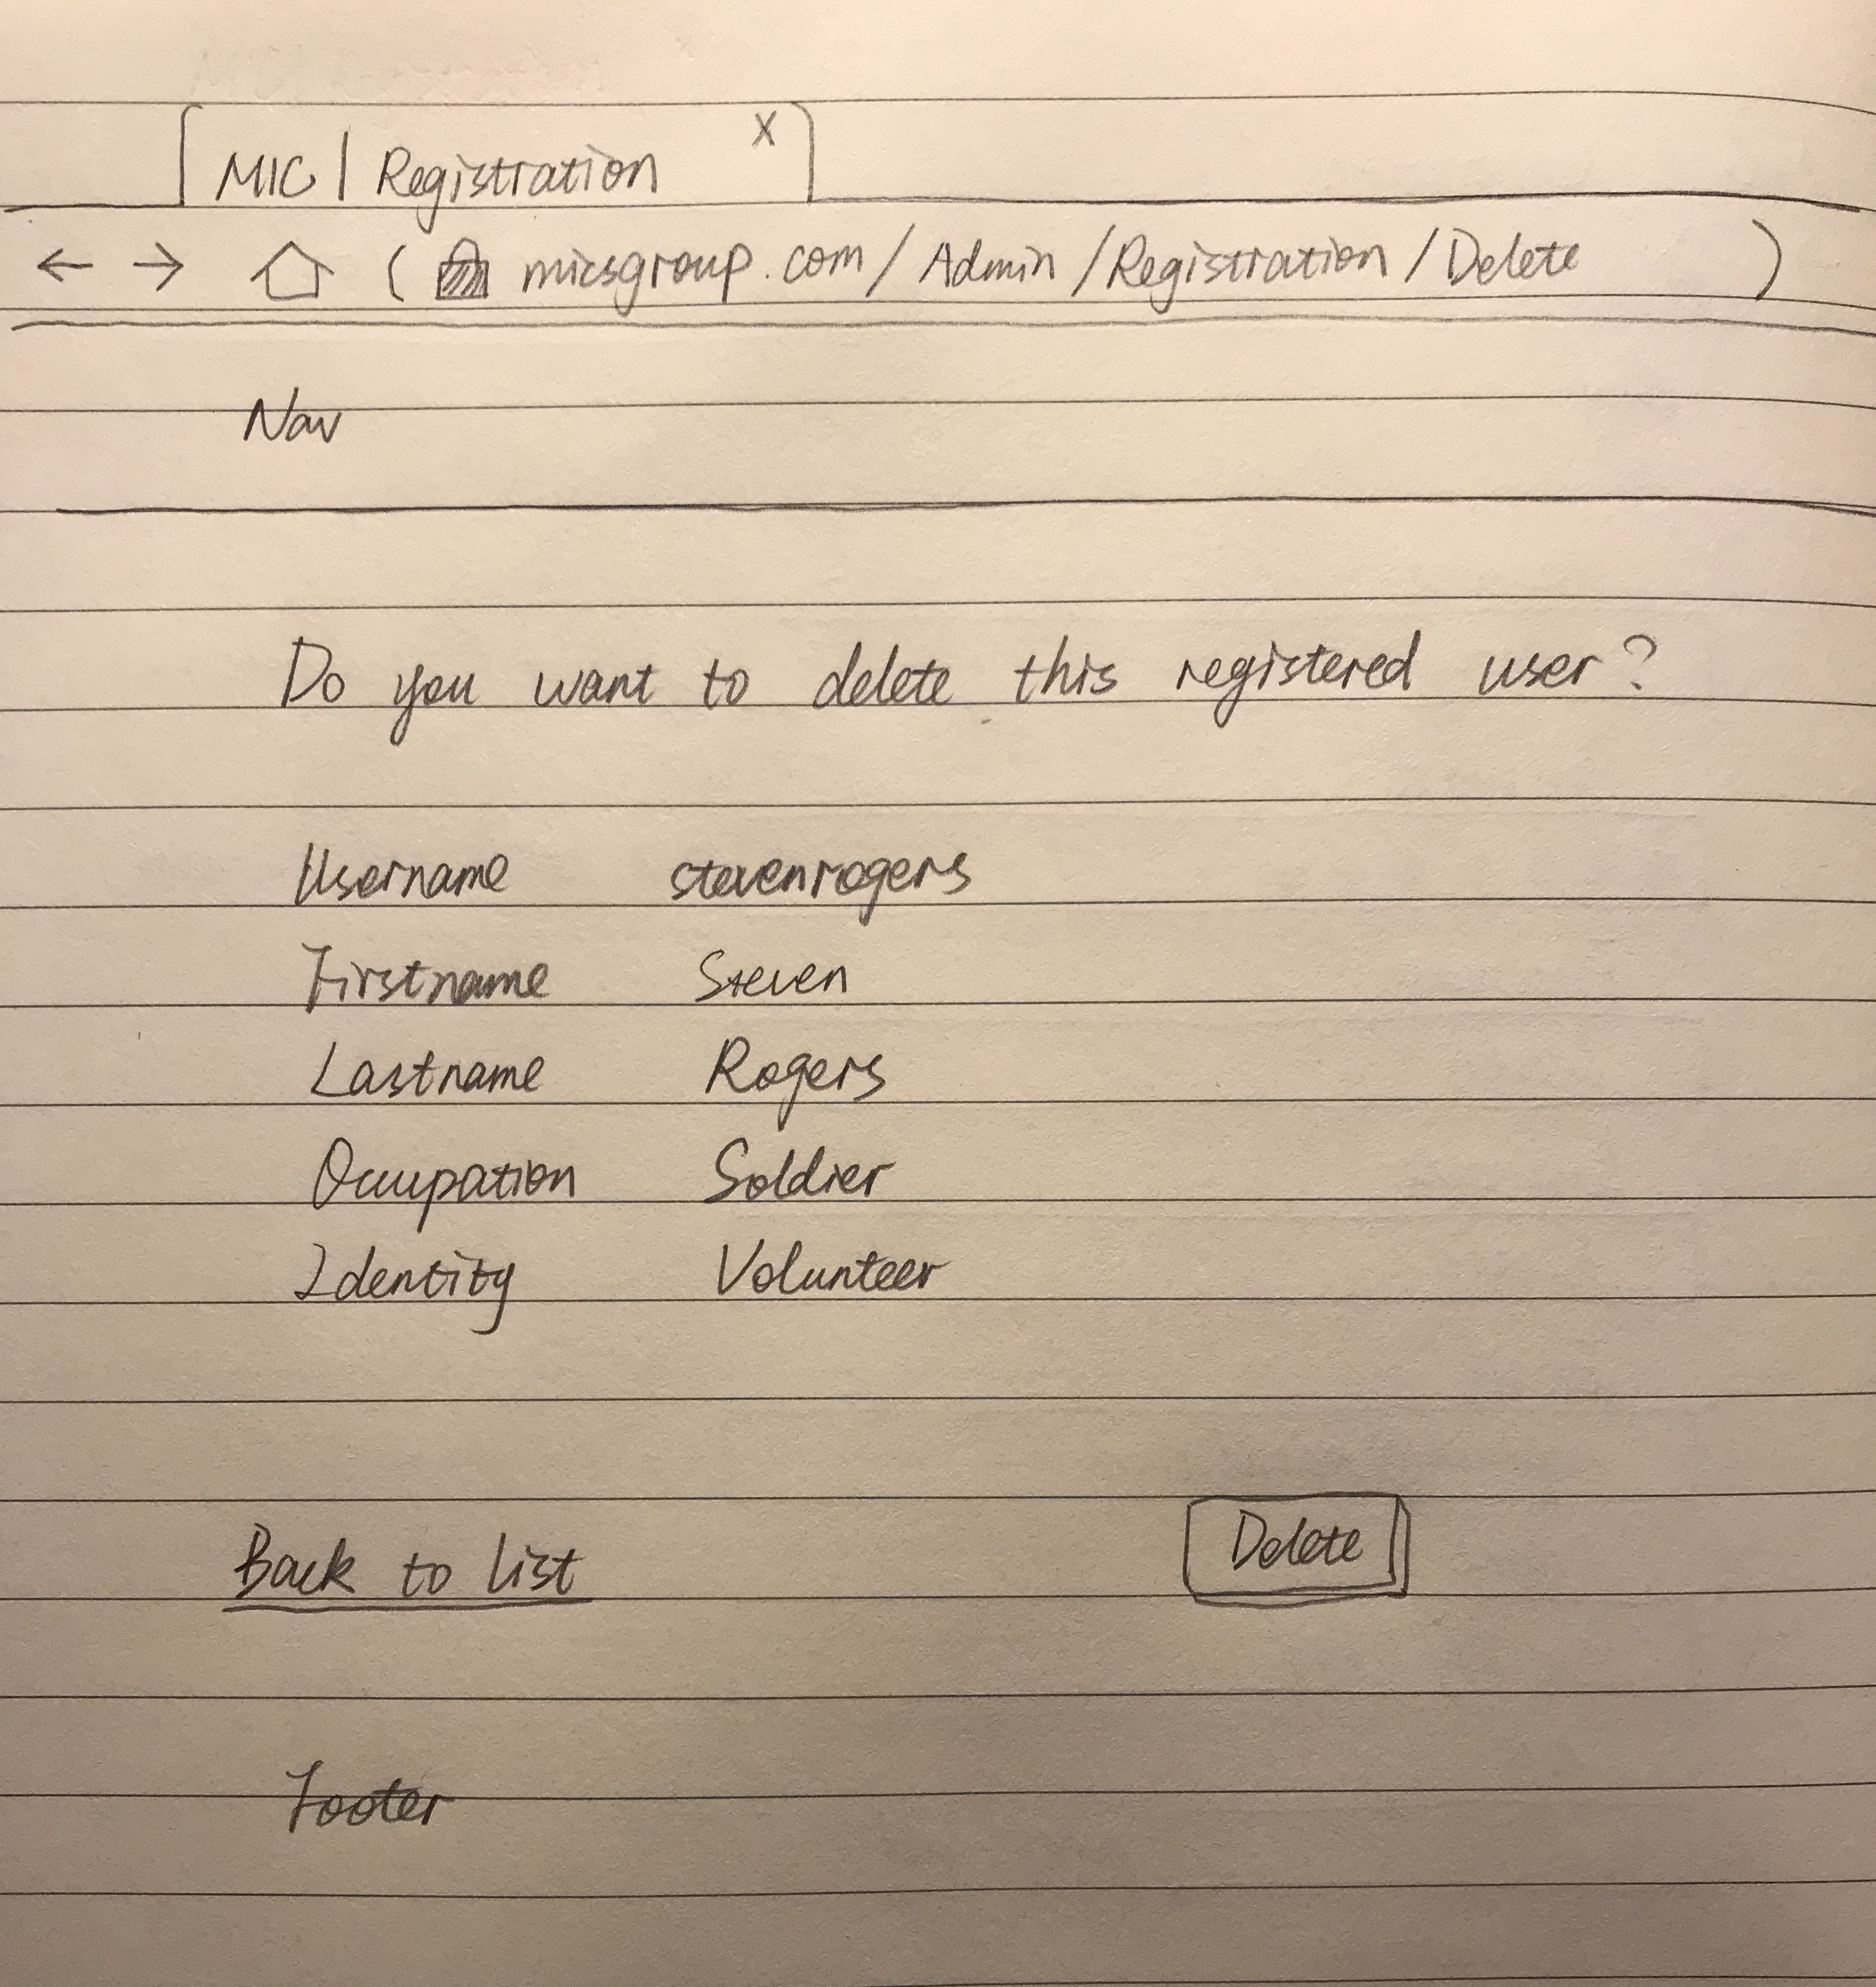 MIC | Registration X
← → micsgroup.com/Admin/Registration/Delete
Nav
Do you want to delete this registered user?
Username stevenrogers
Firstname Steven
Lastname Rogers
Occupation Soldier
Identity Volunteer
Back to List Delete
Footer